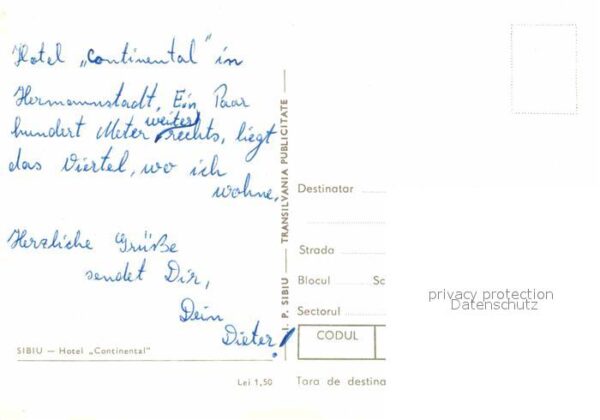 Hotel „Continental" in
Hermannstadt. Ein Paar
hundert Meter weiter rechts, liegt
das Viertel, wo ich
wohne.
Herzliche Grüße
sendet Dir,
Dein
Dieter!
SIBIU — Hotel „Continental"
Lei 1,50
I. P. SIBIU — TRANSILVANIA PUBLICITATE —
Destinatar
Strada
Blocul Sc
Sectorul
CODUL
Țara de destina
privacy protection
Datenschutz